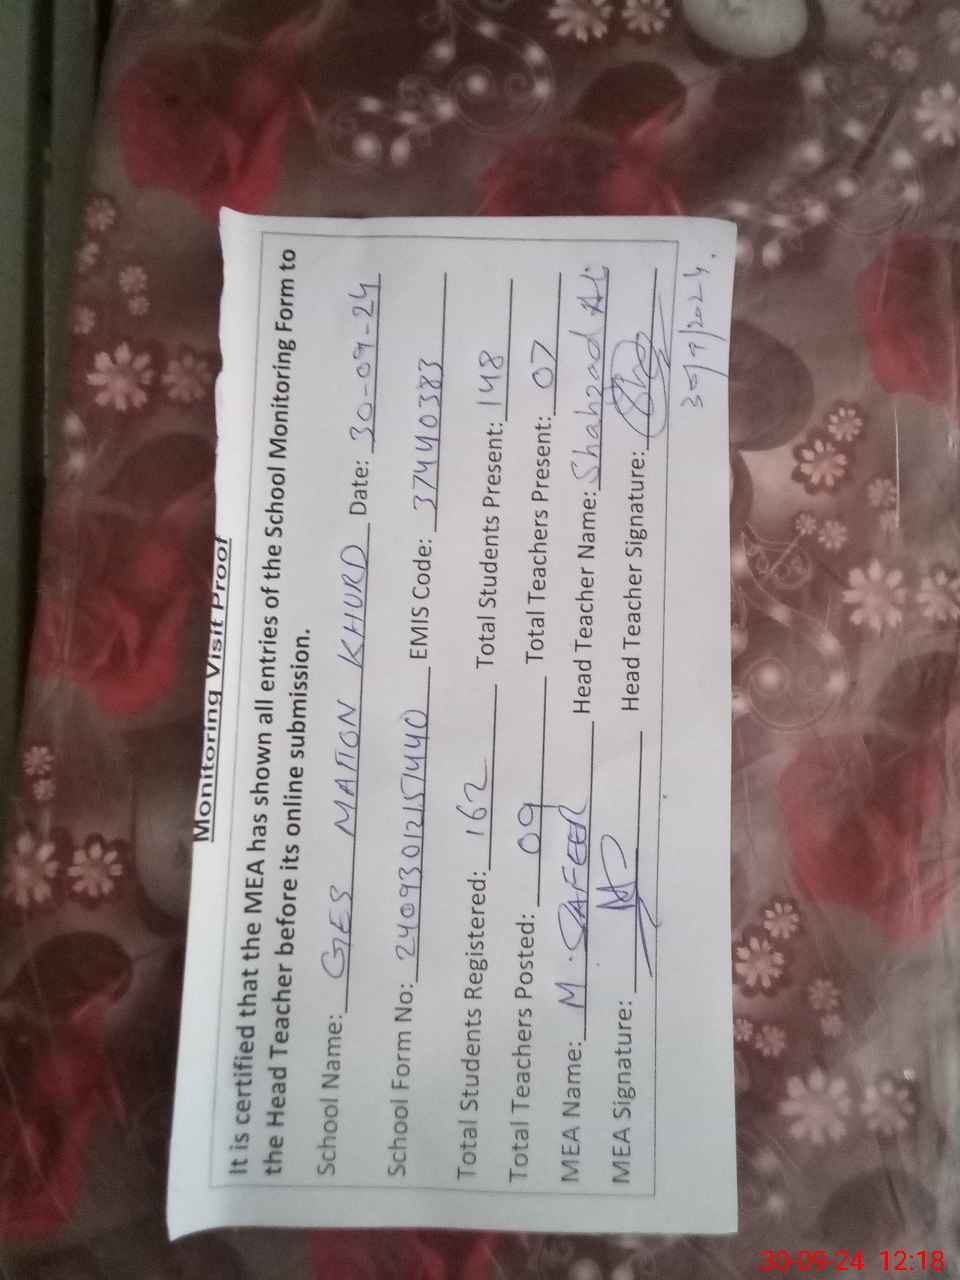 Monitoring Visit Proof
It is certified that the MEA has shown all entries of the School Monitoring Form to
the Head Teacher before its online submission.
School Name: GES MATION KHURD Date: 30-09-24
School Form No: 24093012151440 EMIS Code: 37440383
Total Students Registered: 162 Total Students Present: 148
Total Teachers Posted: 09 Total Teachers Present: 07
MEA Name: M. SAFEER Head Teacher Name: Shahzad Ali
MEA Signature: Head Teacher Signature:
30/9/2024.
30-09-24 12:18